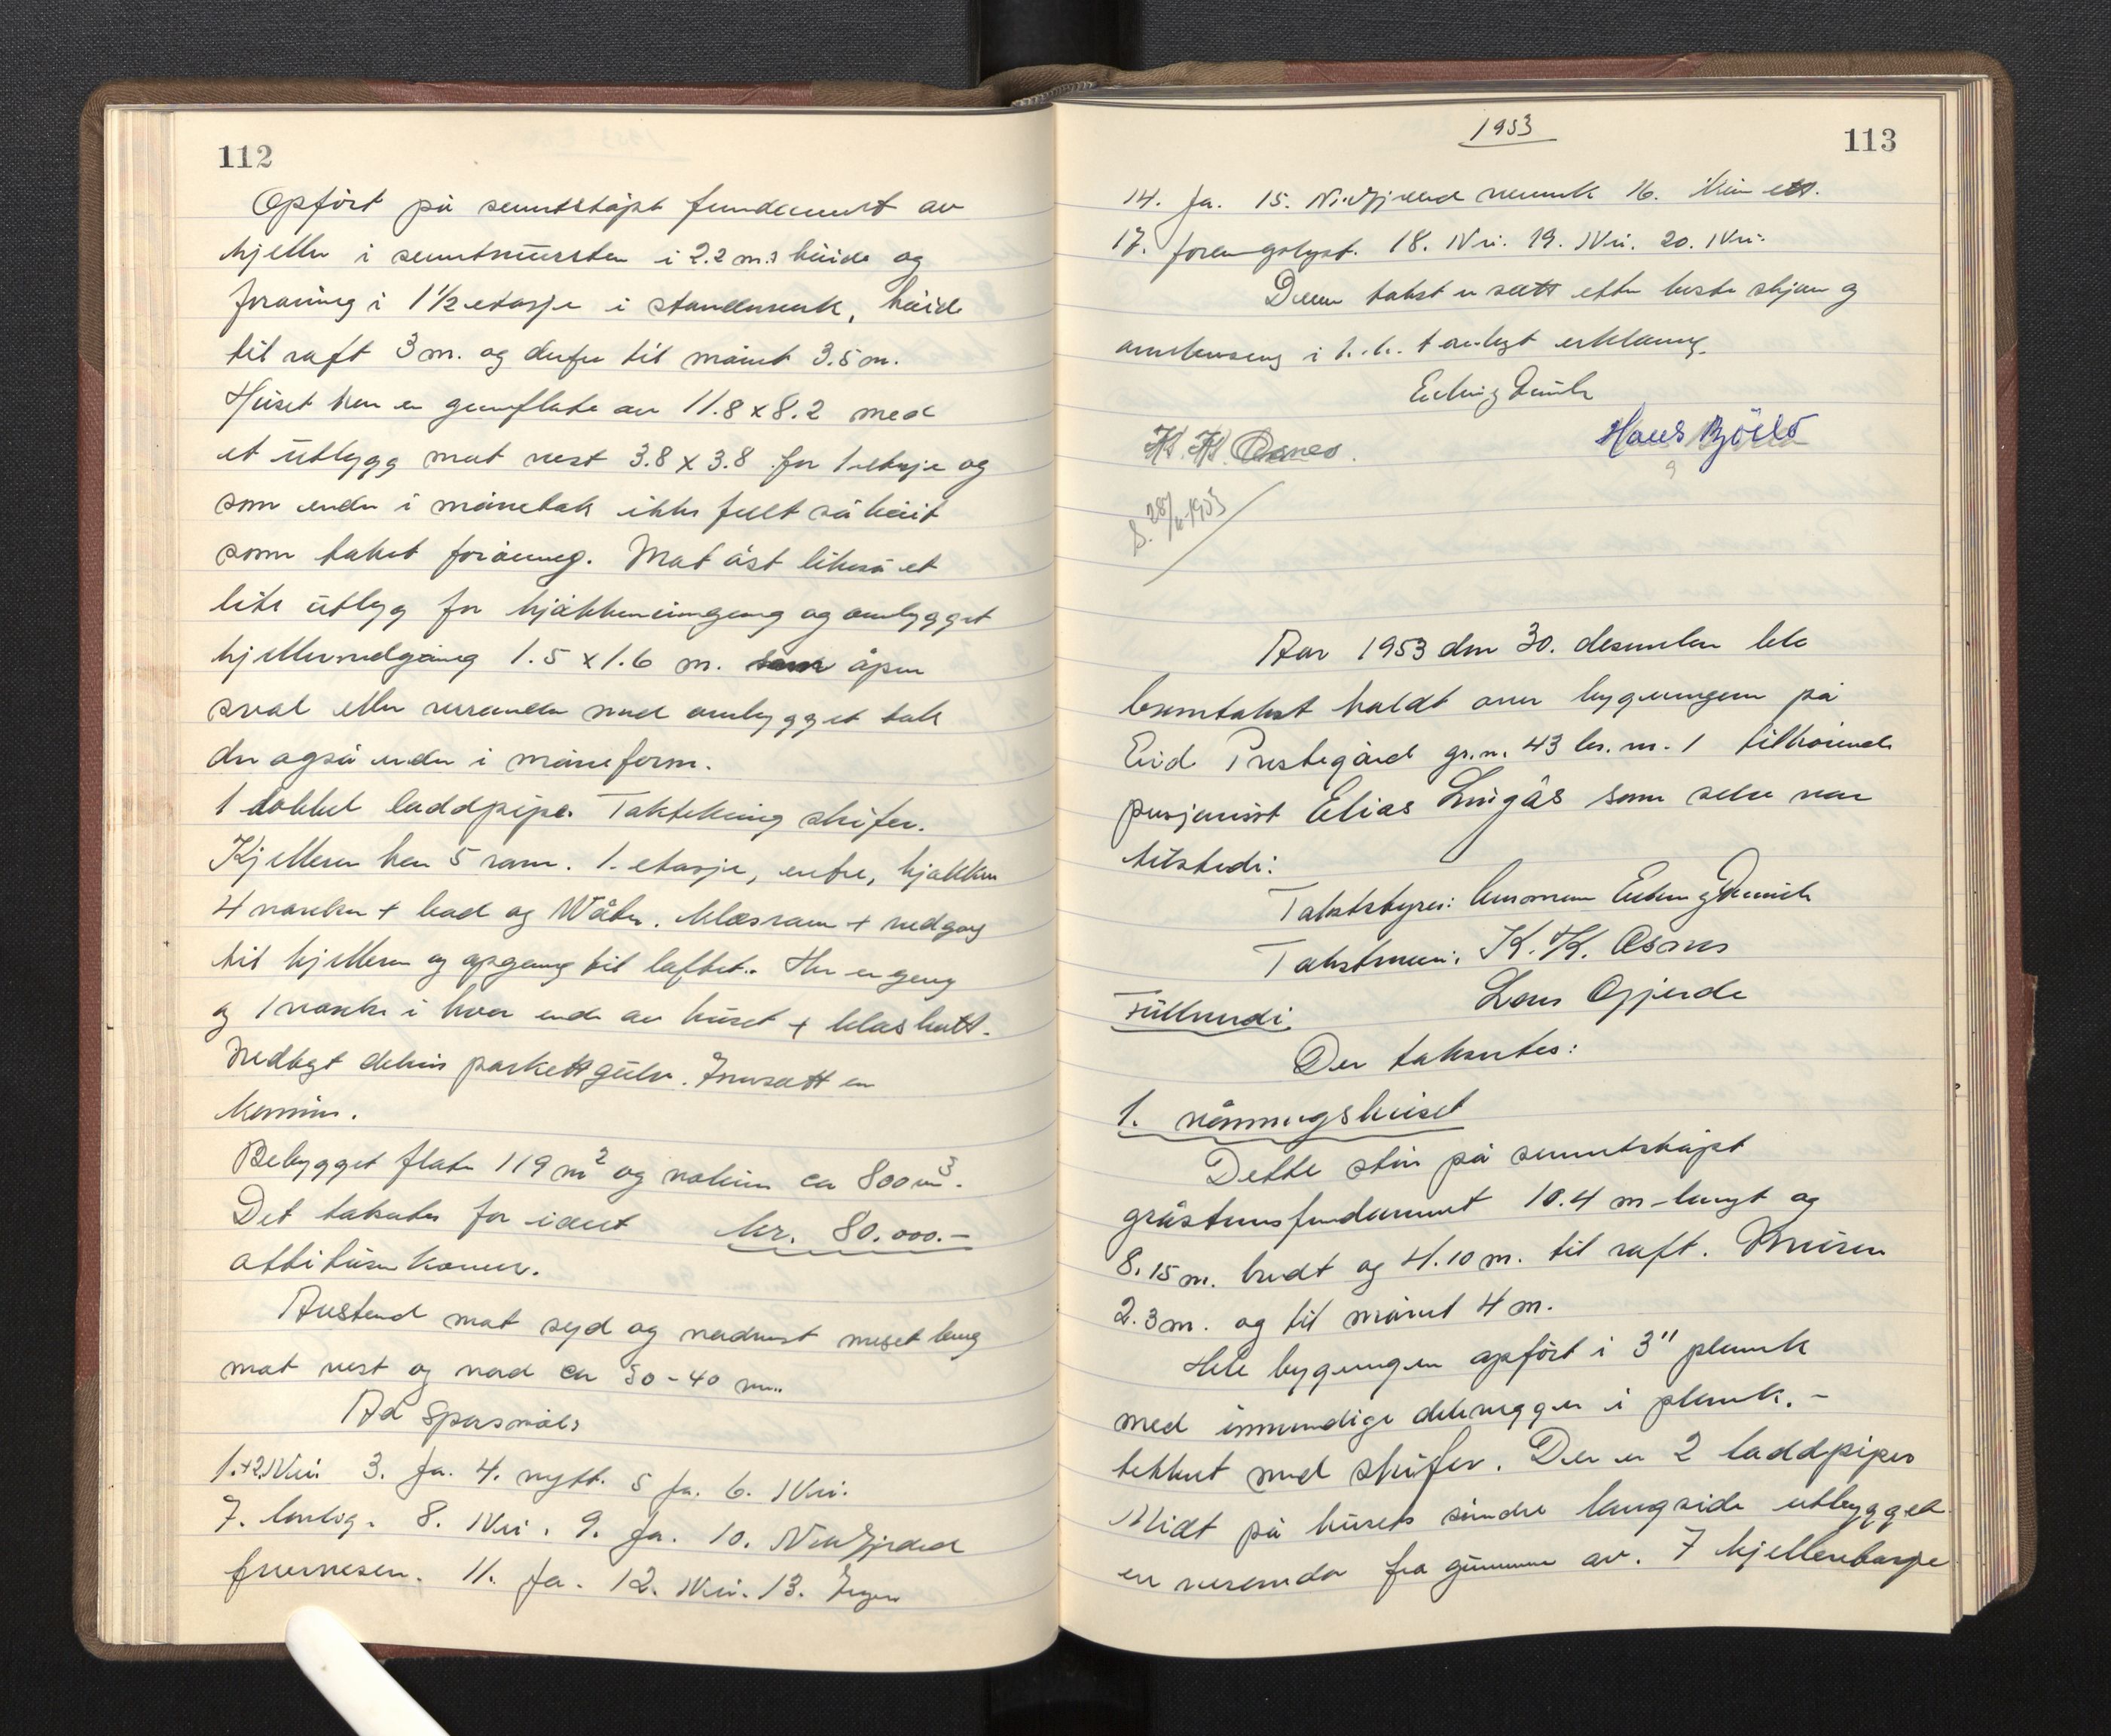 112
Opført på sementstøpt fundament av
kjeller i sementmursten i 2.2 m.s høide og
forövrig i 1½ etasje i standverk, høide
til raft 3 m. og derfra til mönet 3.5 m.
Huset har en grunflate av 11.8 x 8.2 med
et utbygg mot vest 3.8 x 3.8 for 1 etasje og
som ender i mönetak ikke fullt så høit
som taket foröverig. Mot öst likeså et
lite utbygg for kjökkeninngang og ombygget
kjellernedgang 1.5 x 1.6 m. åpen
sval eller veranda med ombygget tak
der også ender i möneform.
1 dobbel laddpipe. Taktekking skifer.
Kjelleren har 5 rom. 1. etasje, entre, kjøkken
4 værelser + bad og Wåter. klæsrom + nedgang
til kjelleren og opgang til loftet. Her er gang
og 1 værelse i hver ende av huset + klæskott.
Nedlagt delvis parkettgulv. Innsatt en
kamin.
Bebygget flate 119 m² og volum ca 800 m³.
Det takseres for idet kr. 80.000.-
åttitusen kroner.
Avstand mot syd og nordvest meget lang
mot vest og nord ca 30-40 m.
Ad Spørsmåls
1.+2. Nei 3. Ja. 4. nytt. 5 Ja. 6. Nei.
7. lovlig. 8. Nei. 9. Ja. 10. Nordfjord
11. Ja. 12. Nei. 13. Ingen
1953
113
14. Ja. 15. Nordfjord 16.
17. 18. Nei. 19. Nei. 20. Nei.
Denne takst er satt efter beste skjøn og
i h.h. t avlagt erklæring.
K. K. Osnes. Hans
S. 28/11-1953
Aar 1953 den 30. desember ble
branntakst holdt over bygningene på
Eid Prestegård gr.n. 43 br. nr. 1 tilhørende
Elias Lingås som selv var
tilstede:
Takststyrer: lensmann
Takstmenn: K. K. Osnes
Lars Gjerde
Fullverdi.
Der takseres:
1. våningshuset
Dette står på sementstøpt
gråstensfundament 10.4 m langt og
8.15 m. bredt og 4.10 m. til raft. Muren
2.3 m. og til mönet 4 m.
Hele bygningen opført i 3" plank
med innvendige delevegger i plank. -
tekket med skifer. Der er 2 laddpiper
Midt på husets søndre langside utbygget
en veranda fra grunnen av. I kjelleretasje